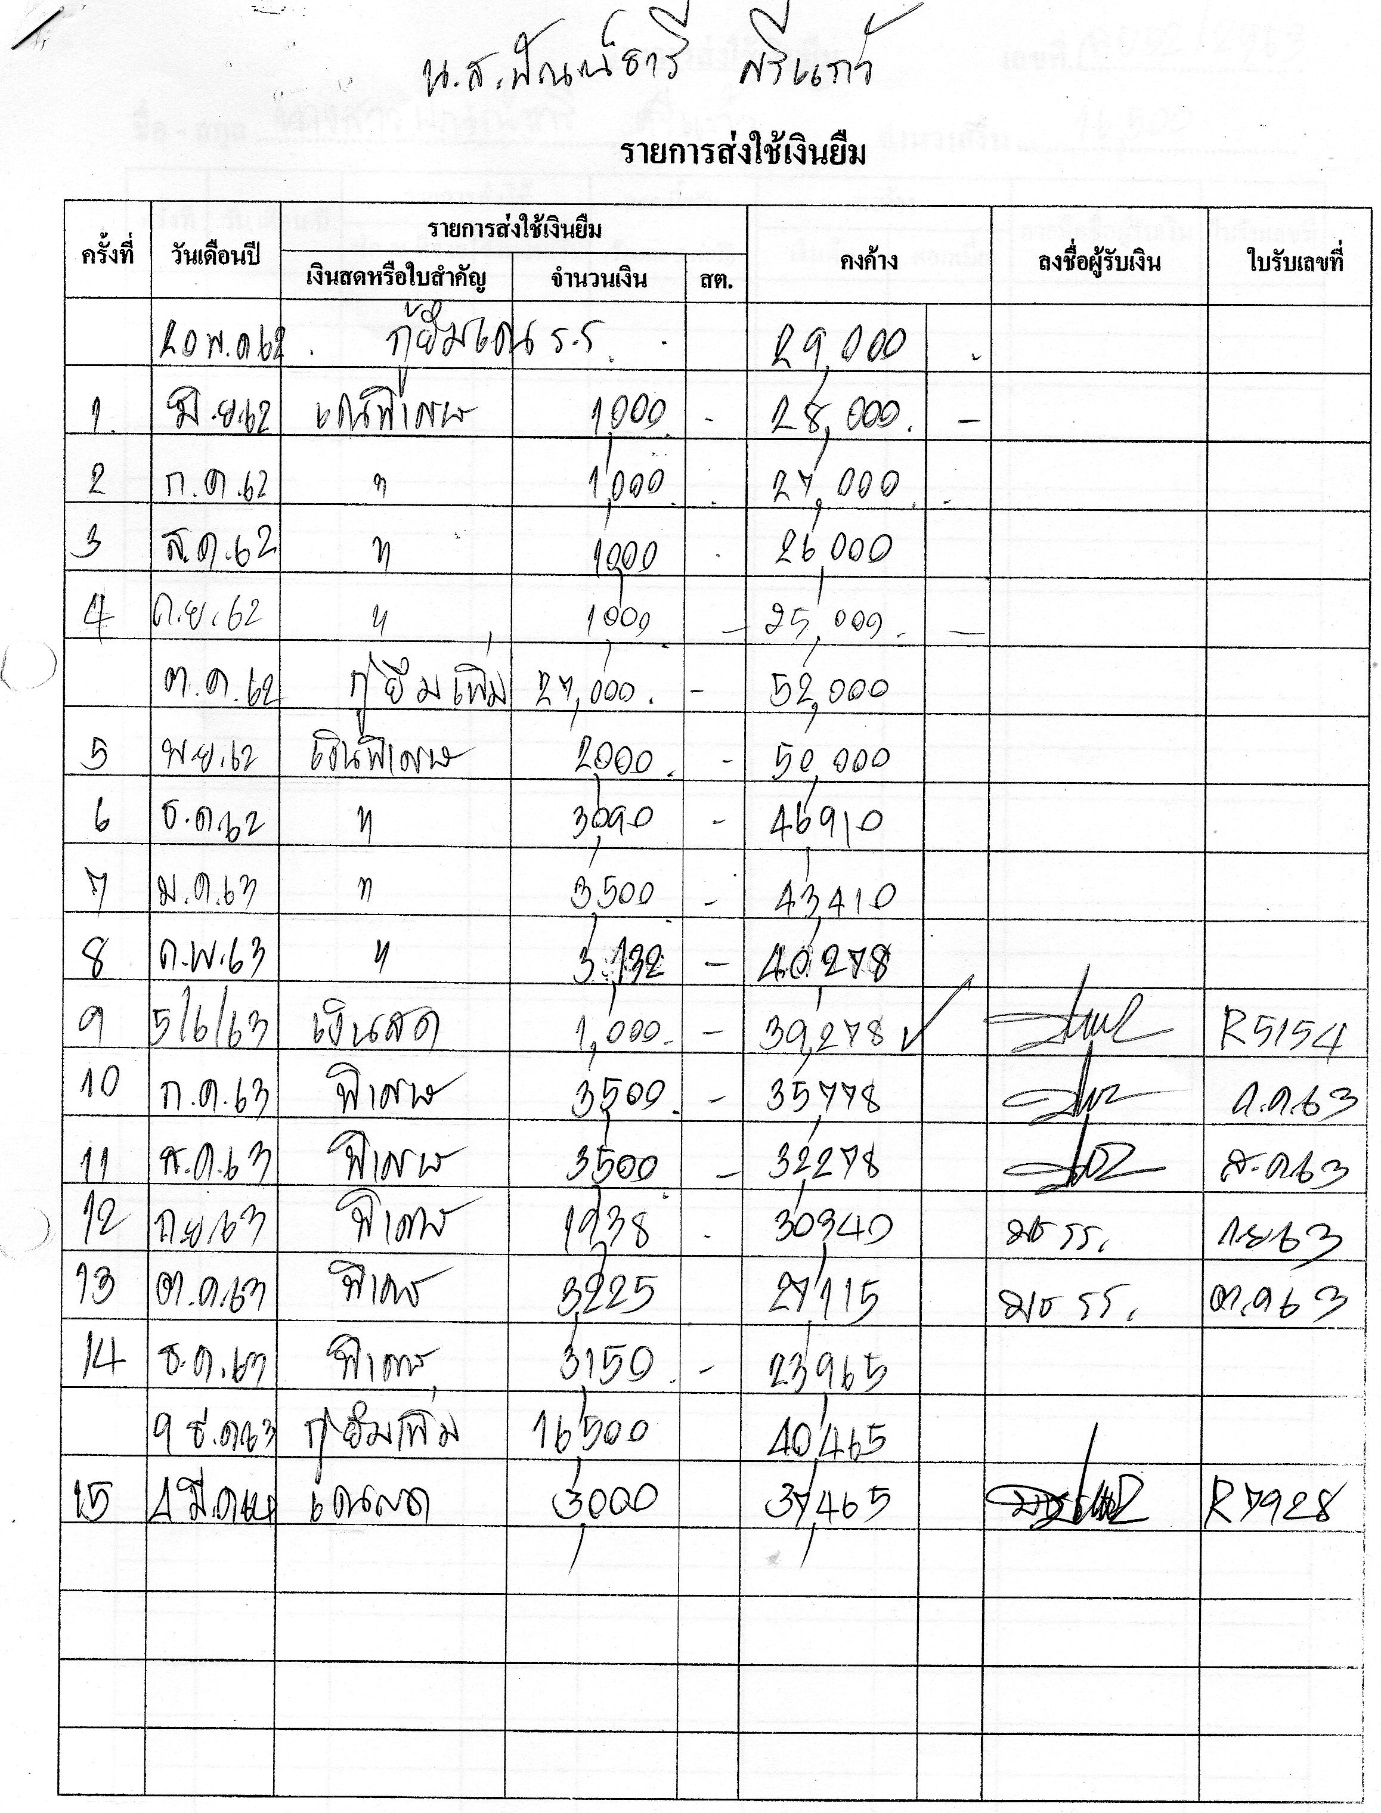 น.ส.พัณณ์ธารี ศรีแก้ว
รายการส่งใช้เงินยืม
ครั้งที่ วันเดือนปี รายการส่งใช้เงินยืม คงค้าง ลงชื่อผู้รับเงิน ใบรับเลขที่
เงินสดหรือใบสำคัญ จำนวนเงิน สต.
20 พ.ค 62 กู้ยืมเงิน ร.ร. 29,000 -
1. มิ.ย.62 เงินพิเศษ 1,000 - 28,000. -
2 ก.ค.62 " 1,000 27,000
3 ส.ค.62 " 1,000 26,000
4 ก.ย.62 " 1,000 - 25,000. -
ต.ค.62 กู้ยืมเพิ่ม 27,000. - 52,000
5 พ.ย.62 เงินพิเศษ 2,000. - 50,000
6 ธ.ค.62 " 3,090 - 46,910
7 ม.ค.63 " 3,500 - 43,410
8 ก.พ.63 " 3,132 - 40,278
9 5/6/63 เงินสด 1,000. - 39,278 ✓ R5154
10 ก.ค.63 พิเศษ 3,500. - 35,778 ก.ค.63
11 ส.ค.63 พิเศษ 3,500 - 32,278 ส.ค.63
12 ก.ย.63 พิเศษ 1,938 30,340 ก.ย.63
13 ต.ค.63 พิเศษ 3,225 27,115 ต.ค.63
14 ธ.ค.63 พิเศษ 3,150. - 23,965
9 ธ.ค.63 กู้ยืมเพิ่ม 16,500 40,465
15 4 มี.ค.64 เงินสด 3,000 37,465 R7928